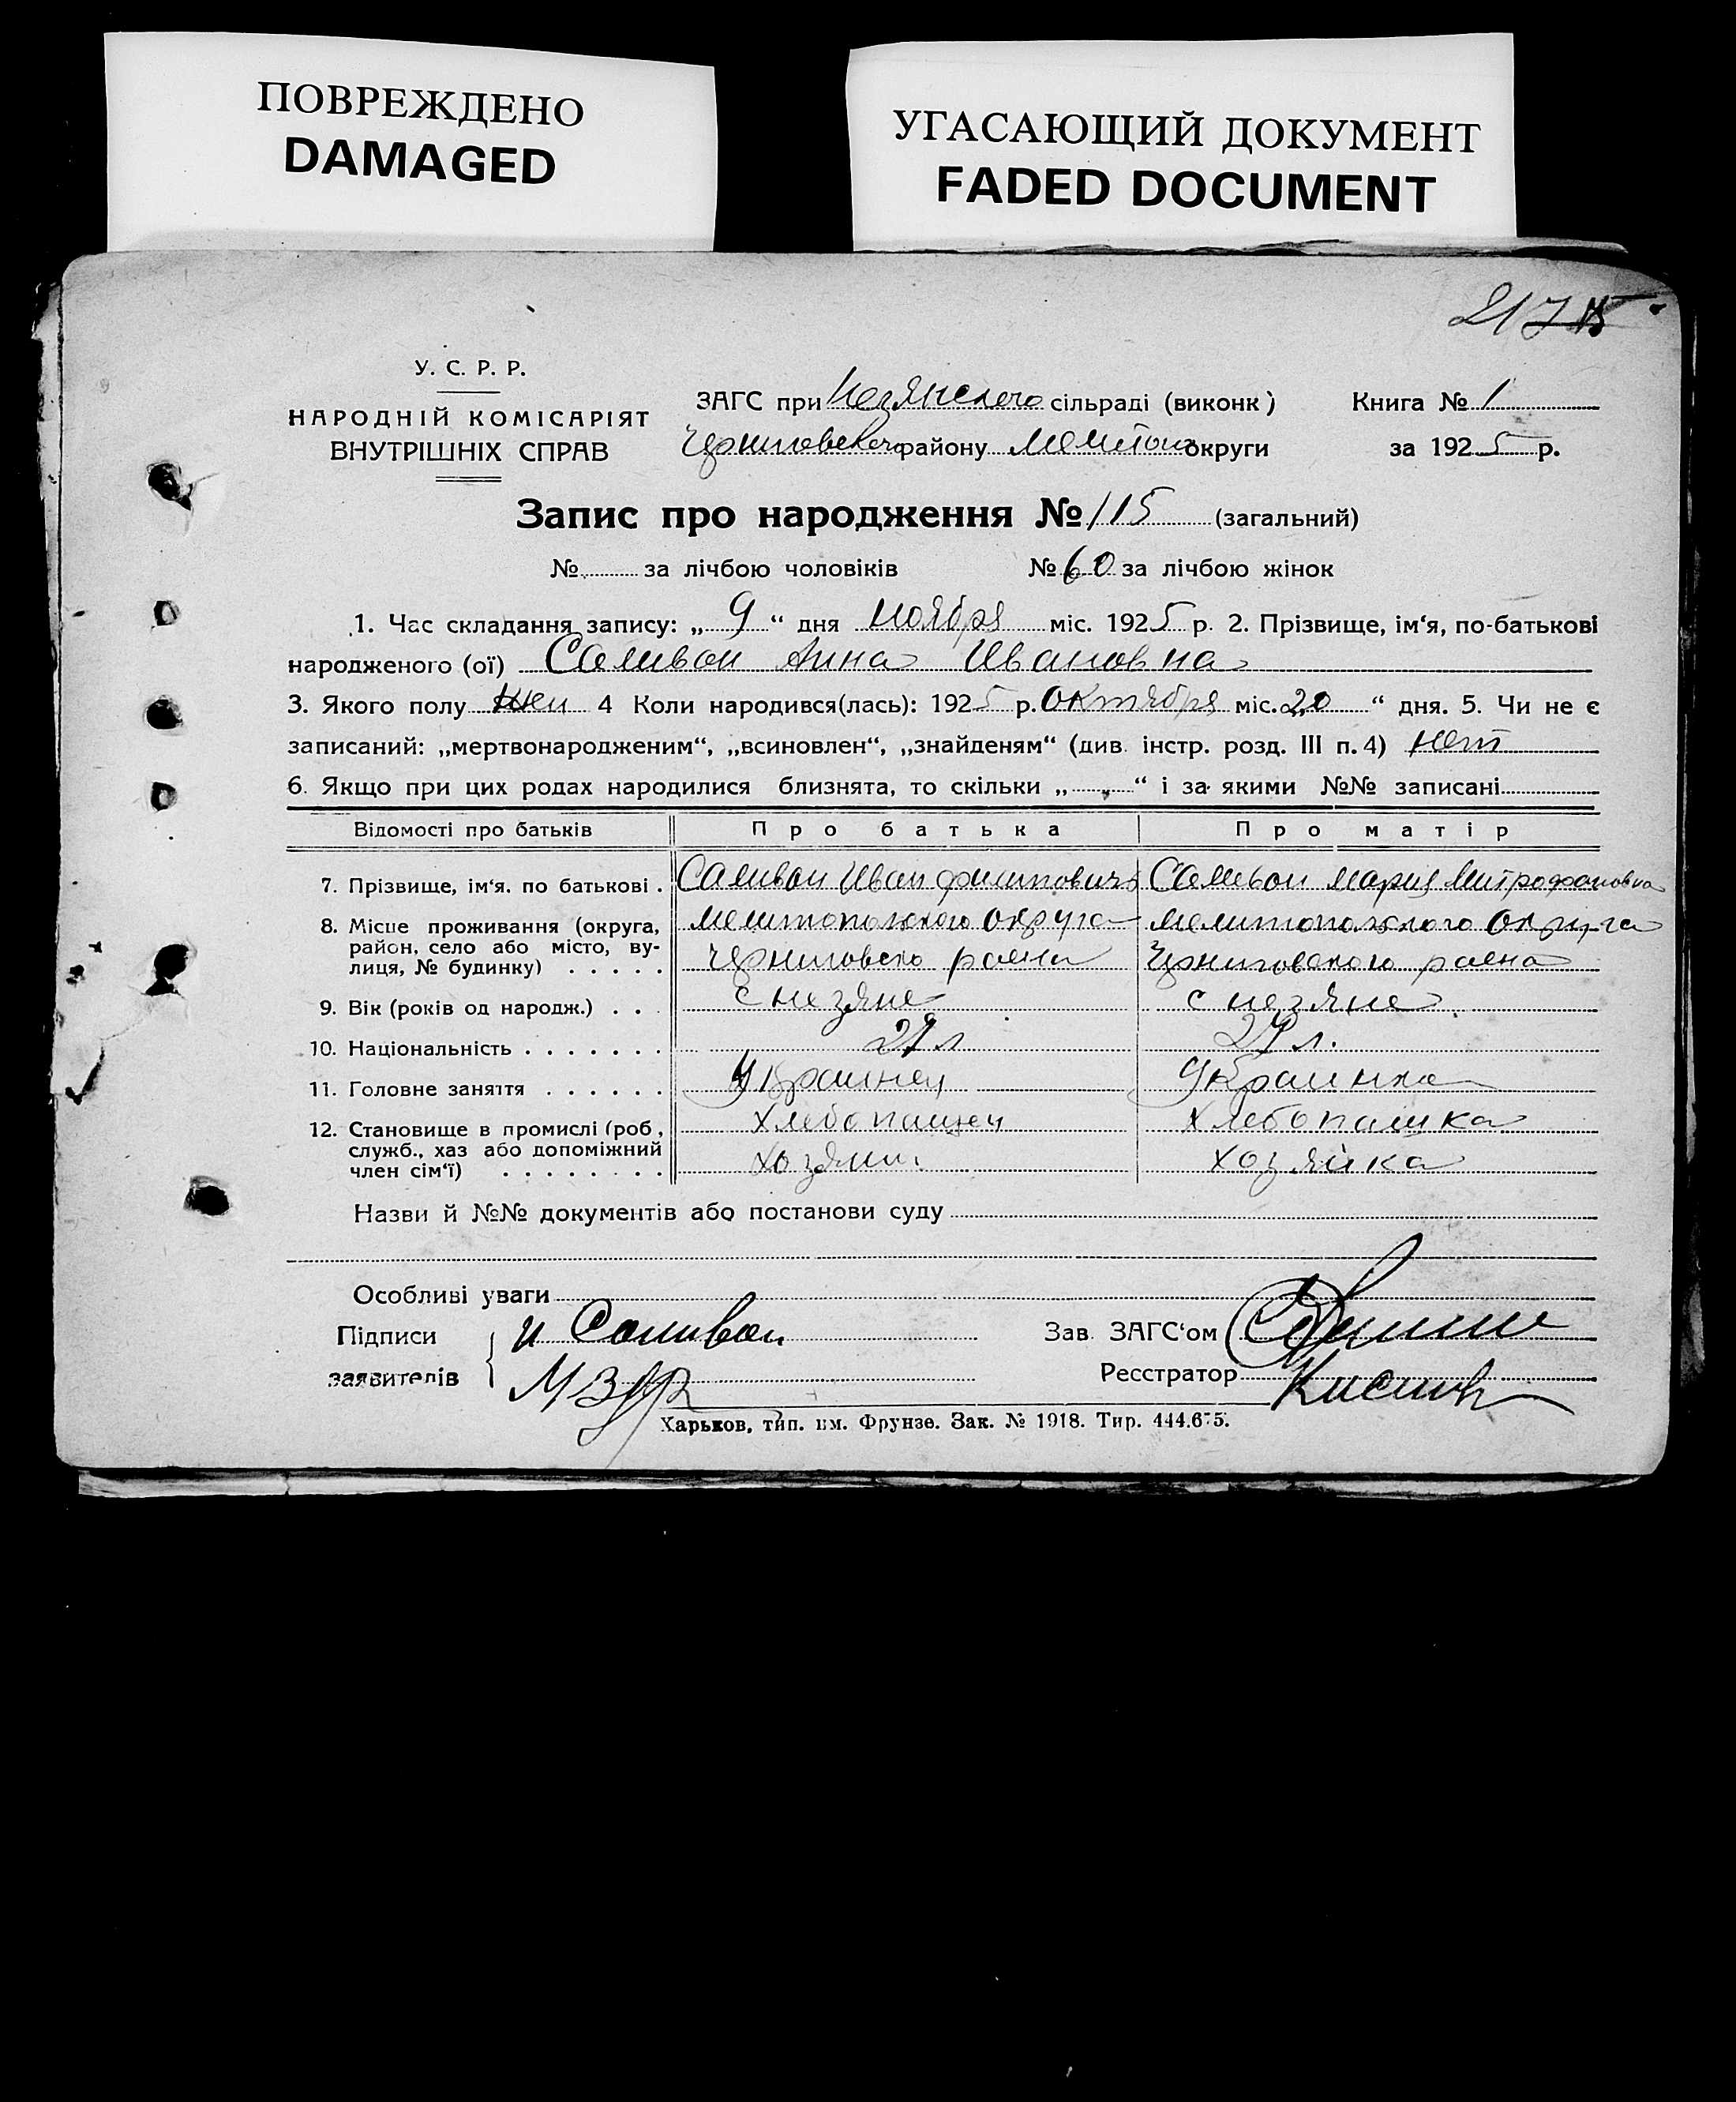 ПОВРЕЖДЕНО
DAMAGED
УГАСАЮЩИЙ ДОКУМЕНТ
FADED DOCUMENT
217
У. С. Р. Р.
НАРОДНІЙ КОМІСАРІЯТ
ВНУТРІШНІХ СПРАВ
ЗАГС при сільраді (виконк) Книга № 1
району округи за 1925 р.
Запис про народження № 115 (загальний)
№ за лічбою чоловіків № 60 за лічбою жінок
1. Час складання запису: „ 9 “ дня ноября міс. 1925 р. 2. Прізвище, ім‘я, по-батькові
народженого (ої) Саливон Анна Ивановна
3. Якого полу жен 4 Коли народився(лась): 1925 р. Октября міс. „20 “ дня. 5. Чи не є
записаний: „мертвонародженим“, „всиновлен“, „знайденям“ (див. інстр. розд. III п. 4) нет
6. Якщо при цих родах народилися близнята, то скільки „ “ і за якими №№ записані
Відомості про батьків Про батька Про матір
7. Прізвище, ім‘я. по батькові . Саливон Иван Саливон Мария Митрофановна
8. Місце проживання (округа, Мелитопольского Округа Мелитопольского Округа
район, село або місто, ву-
лиця, № будинку) . . . . . Черниговско раена Черниговского раена
9. Вік (років од народж.) . . . с незяне с незяне
10. Національність . . . . . . . л 24 л.
11. Головне заняття . . . . . . Украинец Украинка
12. Становище в промислі (роб, Хлебопашец Хлебопашка
служб., хаз або допоміжний
член сім‘ї) . . . . . . . . Хозяин. Хозяйка
Назви й №№ документів або постанови суду
Особливі уваги
Підписи и Саливон Зав. ЗАГС‘ом
заявителів Реєстратор
Харьков, тип. им. Фрунзе. Зак. № 1918. Тир. 444.675.